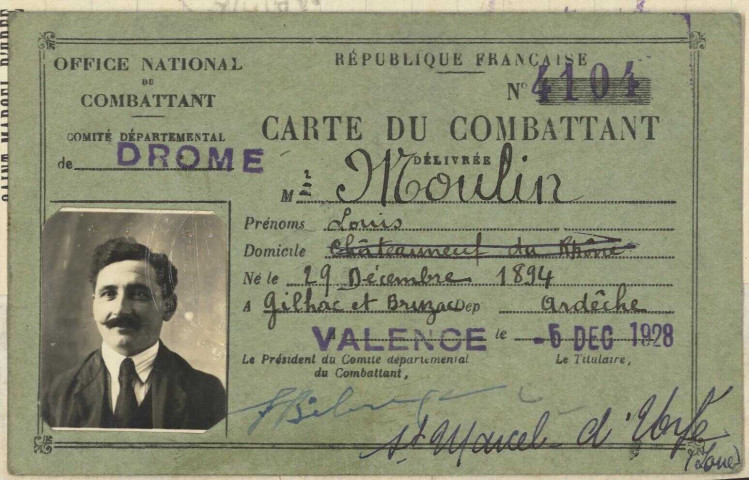 OFFICE NATIONAL
DU
COMBATTANT
COMITÉ DÉPARTEMENTAL
de DROME
RÉPUBLIQUE FRANÇAISE
N° 4104
CARTE DU COMBATTANT
DÉLIVRÉE
M r Moulin
Prénoms Louis
Domicile Châteauneuf du Rhône
Né le 29 Décembre 1894
A Gilhac et Bruzac Dép Ardêche
VALENCE le -5 DEC 1928
Le Président du Comité départemental
du Combattant,
Le Titulaire,
St Marcel d'Urfé
(Loire)